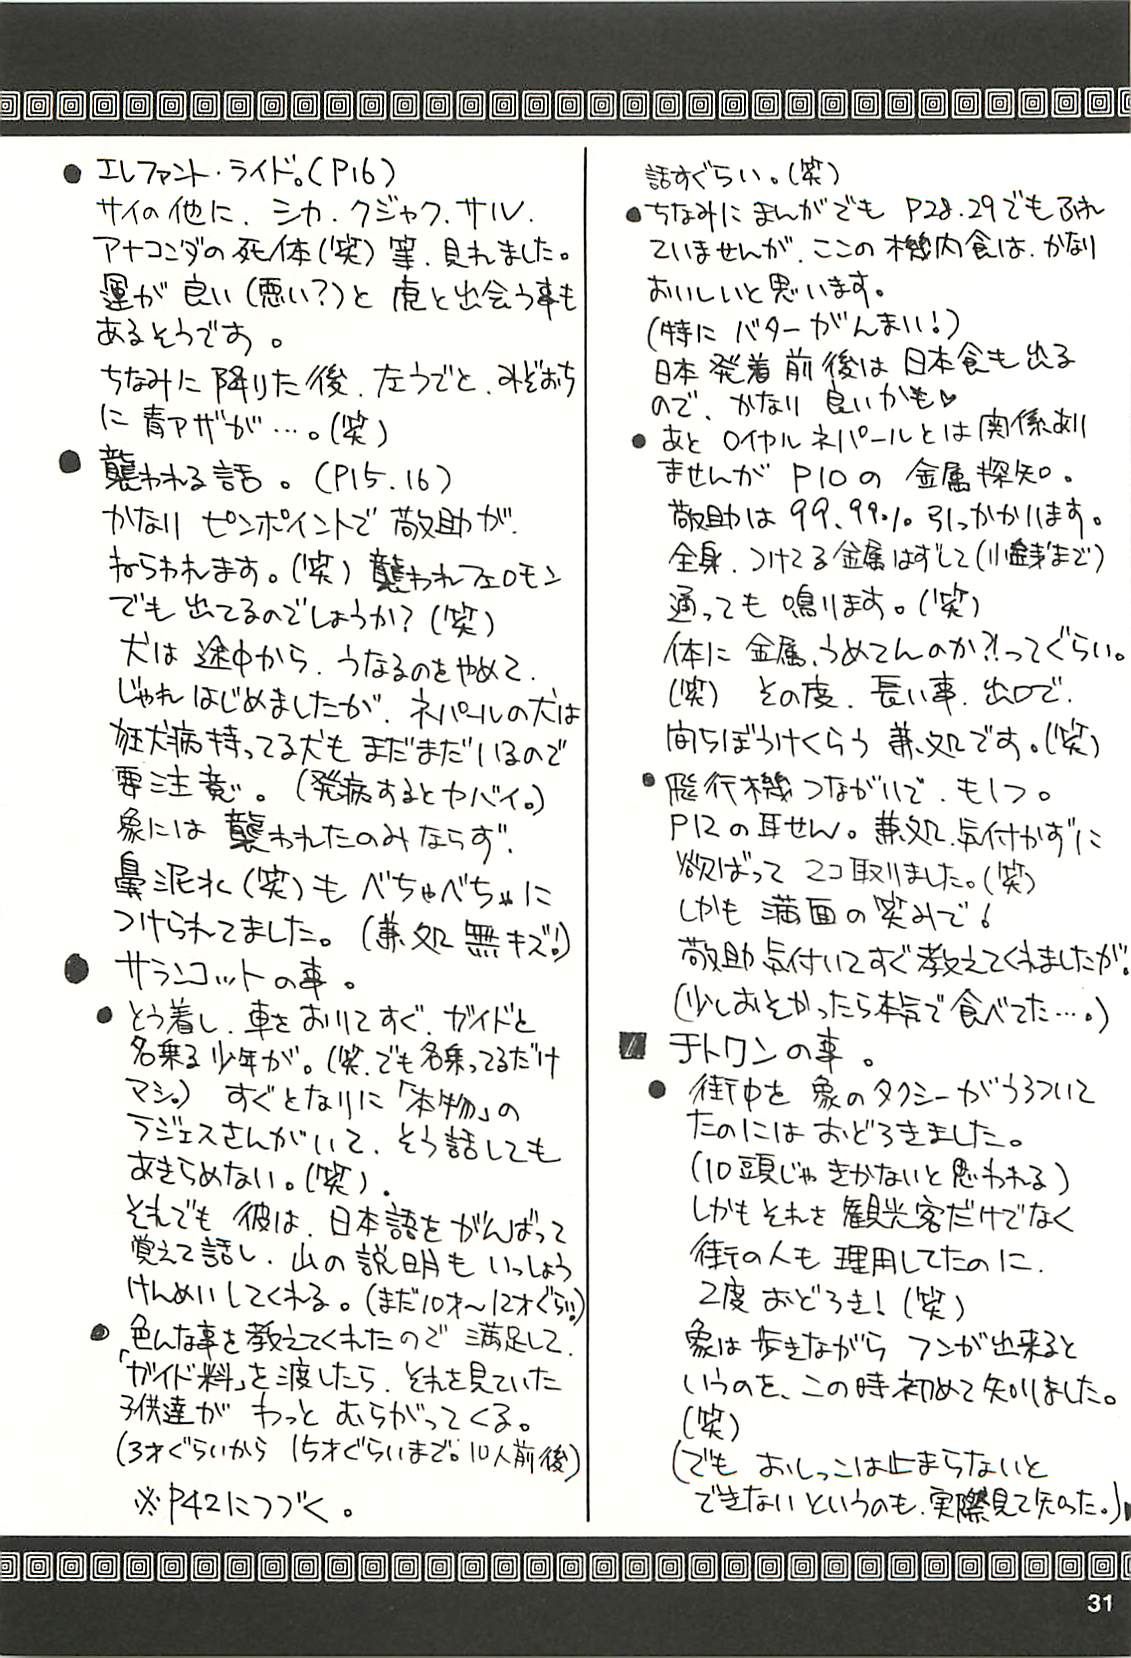 話すぐらい。(笑)
●ちなみにまんがでも P28.29でもふれ
ていませんが、ここの機内食は、かなり
おいしいと思います。
(特にバターがんまい！)
日本発着前後は日本食も出る
ので、かなり良いかも♥
●あとロイヤルネパールとは関係あり
ませんがP10の金属探知。
敬助は99.99%引っかかります。
全身、つけてる金属はずして(小銭まで)
通っても鳴ります。(笑)
体に金属、うめてんのか?!ってぐらい。
(笑) その度、長い事、出口で、
待ちぼうけくらう兼処です。(笑)
●飛行機つながりで、もう1つ。
P12の耳せん。兼処、気付かずに
欲ばって2コ取りました。(笑)
しかも満面の笑みで！
敬助気付いてすぐ教えてくれましたが。
(少しおそかったら本気で食べてた…。)
■チトワンの事。
●街中を象のタクシーがうろついて
たのにはおどろきました。
(10頭じゃきかないと思われる)
しかもそれを観光客だけでなく
街の人も理用してたのに、
2度おどろき！(笑)
象は歩きながらフンが出来ると
いうのを、この時初めて知りました。
(笑)
(でもおしっこは止まらないと
できないというのも、実際見て知った。)
●エレファント・ライド。(P16)
サイの他に、シカ、クジャク、サル、
アナコンダの死体(笑)等、見れました。
運が良い(悪い?)と虎と出会う事も
あるそうです。
ちなみに降りた後、左うでと、みぞおち
に青アザが…。(笑)
●襲われる話。(P15.16)
かなりピンポイントで敬助が、
ねらわれます。(笑)襲われフェロモン
でも出てるのでしょうか?(笑)
犬は途中から、うなるのをやめて、
じゃれはじめましたが、ネパールの犬は
狂犬病持ってる犬もまだまだいるので
要注意。(発病するとヤバイ。)
象には襲われたのみならず、
鼻泥水(笑)もべちゃべちゃに
つけられてました。(兼処無キズ!)
●サランコットの事。
●とう着し、車をおりてすぐ、ガイドと
名乗る少年が。(笑、でも名乗ってるだけ
マシ。) すぐとなりに「本物」の
ラジェスさんがいて、そう話しても
あきらめない。(笑)．
それでも彼は、日本語をがんばって
覚えて話し、山の説明もいっしょう
けんめいしてくれる。(まだ10才〜12才ぐらい)
●色んな事を教えてくれたので満足して、
「ガイド料」を渡したら、それを見ていた
子供達がわっとむらがってくる。
(3才ぐらいから15才ぐらいまで。10人前後)
※P42につづく。
31